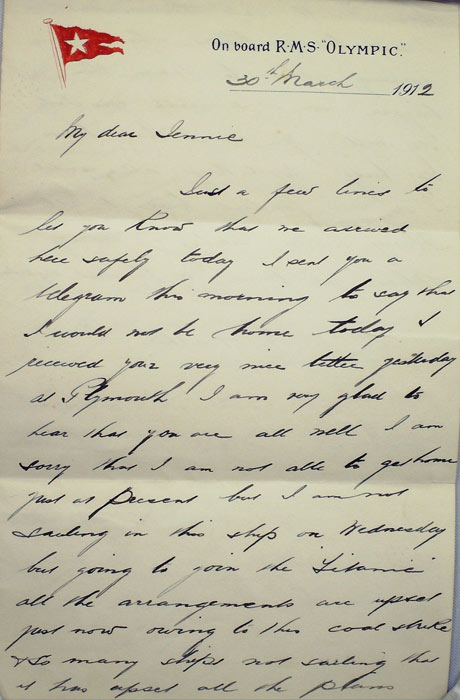 On board R·M·S· "OLYMPIC."
30th March 1912
My dear Jennie
Just a few lines to
let you know that we arrived
here safely today I sent you a
telegram this morning to say that
I would not be home today &
received your very nice letter yesterday
at Plymouth I am very glad to
hear that you are all well I am
sorry that I am not able to get home
just at present but I am not
sailing in this ship on Wednesday
but going to join the Titanic
all the arrangements are upset
just now owing to this coal strike
& so many ships not sailing that
it has upset all the plans